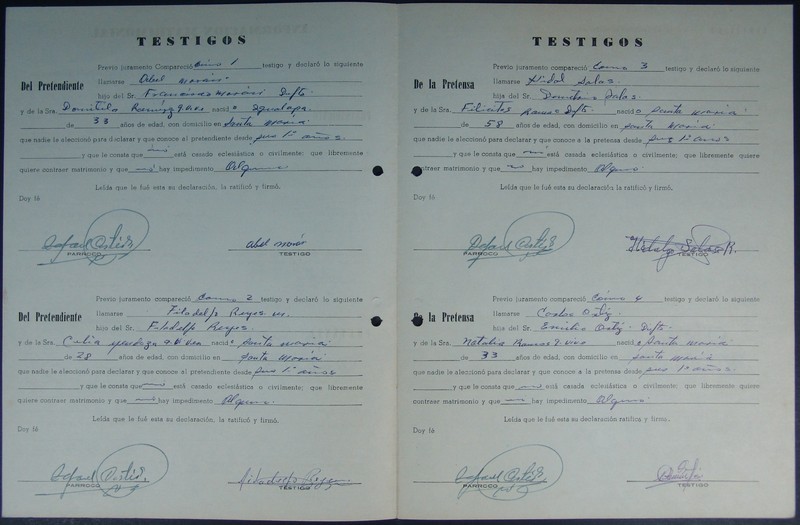 TESTIGOS
Previo juramento Compareció Como 1 testigo y declaró lo siguiente
Del Pretendiente llamarse Abel Morán
hijo del Sr. Francisco Morán Dfto
y de la Sra. Domitila Ramírez q. Vive nació Igualapa
de 33 años de edad, con domicilio en Santa María
que nadie le aleccionó para declarar y que conoce al pretendiente desde años
y que le consta que está casada eclesiástica o civilmente; que libremente
quiere contraer matrimonio y que hay impedimento Alguno
Leída que le fué esta su declaración, la ratificó y firmó.
Doy fé
Rafael Ortiz
abel morán
PARROCO
TESTIGO
Previo juramento compareció Como 2 testigo y declaró lo siguiente
Del Pretendiente llamarse Filadelfo Reyes
hijo del Sr. Filadelfo Reyes
y de la Sra. Celia q. Vive nació Santa María
de 28 años de edad, con domicilio en Santa María
que nadie le aleccionó para declarar y que conoce al pretendiente desde años
y que le consta que está casada eclesiástica o civilmente; que libremente
quiere contraer matrimonio y que hay impedimento Alguno
Leída que le fué esta su declaración, la ratificó y firmó.
Doy fé
Rafael Ortiz
PARROCO
TESTIGO
TESTIGOS
Previo juramento compareció Como 3 testigo y declaró lo siguiente
De la Pretensa llamarse Hidal Salas
hija del Sr. Salas
y de la Sra. Ramos Dfto nació Santa María
de 58 años de edad, con domicilio en Santa María
que nadie le aleccionó para declarar y que conoce a la pretensa desde años
y que le consta que está casada eclesiástica o civilmente; que libremente
contraer matrimonio y que hay impedimento Alguno
Leída que le fué esta su declaración la ratificó y firmó.
Doy fé
Rafael Ortiz
PARROCO
TESTIGO
Previo juramento compareció Como 4 testigo y declaró lo siguiente
De la Pretensa llamarse Carlos Ortiz
hijo del Sr. Emilio Ortiz Dfto
y de la Sra. Natalia Ramos q. Vive nació Santa María
de 33 años de edad, con domicilio en Santa María
que nadie le aleccionó para declarar y que conoce a la pretensa desde años
y que le consta que está casada eclesiástica o civilmente; que libremente quiere
contraer matrimonio y que hay impedimento Alguno
Leída que le fué esta su declaración ratifica y firmó.
Doy fé
Rafael Ortiz
PARROCO
TESTIGO